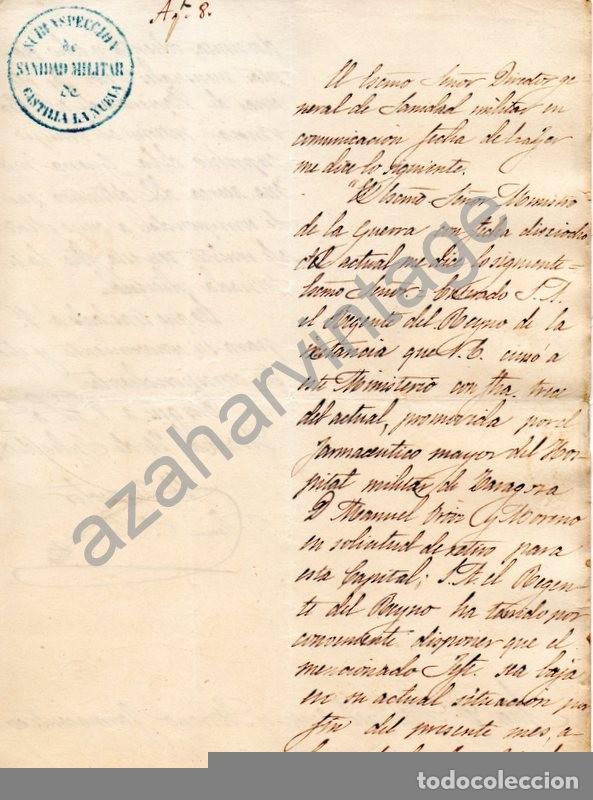 Agto. 8.
SUBINSPECCION
de
SANIDAD MILITAR
de
CASTILLA LA NUEVA
El Escmo Señor Director ge-
neral de Sanidad militar en
comunicacion fecha de
me dice lo siguiente.
"El Escmo Señor Ministro
de la Guerra con fecha dieciocho
del actual me dice lo siguiente-
Escmo Señor: Enterado S. A.
el Regente del Reyno de la
instancia que V. E. cursó a
este Ministerio con fha. trece
del actual, promovida por el
farmaceutico mayor del Hos-
pital militar de Zaragoza
D Manuel y Moreno
en solicitud de retiro para
esta Capital; S. A. el Regen-
te del Reyno ha tenido por
conveniente disponer que el
mencionado Jefe sea baja
en su actual situacion por
fin del presente mes, a
azaharvintage
todocoleccion